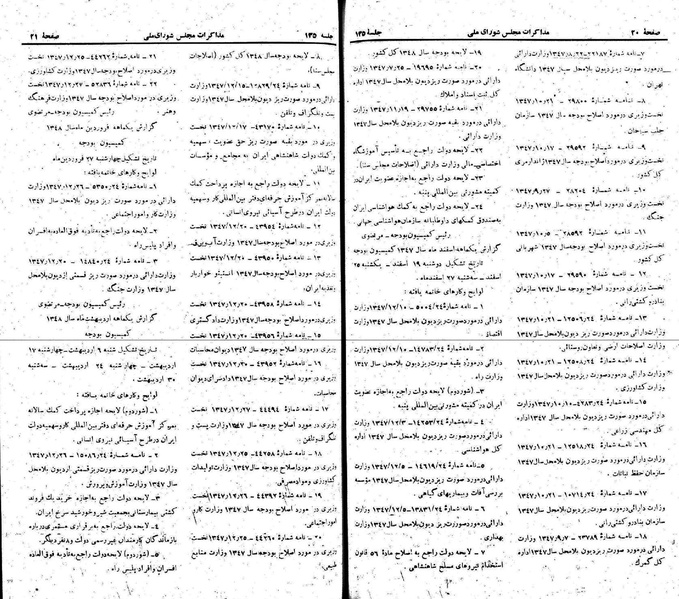 صفحهٔ ۲۰
مذاکرات مجلس شورای ملی
جلسهٔ ۱۳۵
۷- نامه شمارهٔ ۲۲۱۸۷-۱۳۴۷/۸/۲۲ وزارت دارائی
در مورد صورت ریز دیون بلامحل سال ۱۳۴۷ دانشگاه
تهران.
۸- نامه شمارهٔ ۲۹۸۰۰ - ۱۳۴۷/۱۰/۲۱
نخست وزیری در مورد اصلاح بودجه سال ۱۳۴۷ سازمان
جلب سیاحان.
۹- نامه شمارهٔ ۲۹۵۹۲ - ۱۳۴۷/۱۰/۱۷
نخست‌وزیری در مورد اصلاح بودجه سال ۱۳۴۷ ژاندارمری
کل کشور.
۱۰- نامه شمارهٔ ۲۸۲۰۴ - ۱۳۴۷/۹/۲۷
نخست وزیری در مورد اصلاح بودجه سال ۱۳۴۷ وزارت
جنگ.
۱۱- نامه شمارهٔ ۲۸۵۹۲ - ۱۳۴۷/۱۰/۵
نخست وزیری در مورد اصلاح بودجه سال ۱۳۴۷ شهربانی
کل کشور.
۱۲- نامه شمارهٔ ۲۹۵۹۰ - ۱۳۴۷/۱۰/۱۷
نخست وزیری در مورد اصلاح بودجه سال ۱۳۴۷ سازمان
بنادر و کشتی‌رانی.
۱۳- نامه شمارهٔ ۱۲۵۰۶/۲۴ - ۱۳۴۷/۱۰/۲۱
وزارت دارائی در مورد صورت ریز دیون بلامحل سال ۱۳۴۷
وزارت اصلاحات ارضی و تعاون روستائی.
۱۴- نامه شمارهٔ ۱۲۵۰۸/۲۴ - ۱۳۴۷/۱۰/۲۱
وزارت دارائی در مورد صورت ریز دیون بلامحل سال ۱۳۴۷
وزارت کشاورزی.
۱۵- نامه شمارهٔ ۴۲۸۳/۲۴ - ۱۳۴۷/۱۰/۱۰
وزارت دارائی در مورد صورت ریز دیون بلامحل سال ۱۳۴۷ اداره
کل مهندسی زراعی.
۱۶- نامه شمارهٔ ۱۲۵۱۸/۲۴ - ۱۳۴۷/۱۰/۲۱
وزارت دارائی در مورد صورت ریز دیون بلامحل سال ۱۳۴۷
سازمان حفظ نباتات.
۱۷- نامه شمارهٔ ۱۰۷۱۴/۲۴ - ۱۳۴۷/۱۰/۲۱
وزارت دارائی در مورد صورت ریز دیون بلامحل سال ۱۳۴۷
سازمان بنادر و کشتی رانی.
۱۸- نامه شمارهٔ ۲۳۷۸۹ - ۱۳۴۷/۹/۷ وزارت
دارائی در مورد صورت ریز دیون بلامحل سال ۱۳۴۷ اداره
کل گمرک.
۱۹- لایحه بودجه سال ۱۳۴۸ کل کشور.
۲۰- نامه شمارهٔ ۱۹۶۹۵ - ۱۳۴۷/۷/۲۵ وزارت
دارائی در مورد صورت ریز دیون بلامحل سال ۱۳۴۷ اداره
کل ثبت اسناد و املاک.
۲۱- نامه شمارهٔ ۲۹۷۵۵ - ۱۳۴۷/۱۱/۱۹
وزارت دارائی در مورد بقیه صورت ریز دیون بلامحل سال ۱۳۴۷
وزارت دارائی.
۲۲- لایحه دولت راجع به تأسیس آموزشگاه
اختصاصی مالی وزارت دارائی (اصلاحات مجلس سنا).
۲۳- لایحه دولت راجع به اجازه عضویت ایران در
کمیته مشورتی بین‌المللی پنبه.
۲۴- لایحه دولت راجع به کمک هواشناسی ایران
به صندوق کمکهای داوطلبانه سازمان هواشناسی جهانی.
رئیس کمیسیون بودجه- مرتضوی
گزارش یکماهه اسفند ماه سال ۱۳۴۷ کمیسیون بودجه
تاریخ تشکیل دوشنبه ۱۹ اسفند - یکشنبه ۲۵
اسفند - سه‌شنبه ۲۷ اسفندماه.
لوایح خاتمه یافته:
۱- نامه شمارهٔ ۵۰۰۴/۲۴ - ۱۳۴۷/۱۲/۱۰ وزارت
دارائی در مورد صورت ریز دیون بلامحل سال ۱۳۴۷ وزارت
اقتصاد.
۲- نامه شمارهٔ ۱۴۷۸۳/۲۴ - ۱۳۴۷/۱۲/۱۰
وزارت دارائی در مورد بقیه صورت ریز دیون بلامحل سال ۱۳۴۷
وزارت راه.
۳- (شور دوم) لایحه دولت راجع به اجازه عضویت
ایران در کمیته مشورتی بین‌المللی پنبه.
۴- نامه شمارهٔ ۱۴۲۵۳/۲۴ - ۱۳۴۷/۱۲/۱ وزارت
دارائی در مورد صورت ریز دیون بلامحل سال ۱۳۴۷ اداره
کل هواشناسی.
۵- نامه شمارهٔ ۱۴۶۱۹/۲۴ - ۱۳۴۷/۱۲/۵ وزارت
دارائی در مورد صورت ریز دیون بلامحل سال ۱۳۴۷ مؤسسه
بررسی آفات و بیماریهای گیاهی.
۶- نامه شمارهٔ ۱۳۸۳۱/۲۴ - ۱۳۴۷/۱۲/۵ وزارت
دارائی در مورد صورت ریز دیون بلامحل سال ۱۳۴۷ وزارت
بهداری.
۷- لایحه دولت راجع به اصلاح مادهٔ ۵۶ قانون
استخدام نیروهای مسلح شاهنشاهی.
جلسه ۱۳۵
مذاکرات مجلس شورای ملی
صفحهٔ ۲۱
۸- لایحه بودجه سال ۱۳۴۸ کل کشور (اصلاحات
مجلس سنا).
۹- نامه شمارهٔ ۱۰۸۲۹/۲۴ - ۱۳۴۷/۱۲/۱۵ وزارت
دارائی در مورد صورت ریز دیون بلامحل سال ۱۳۴۷ وزارت
پست و تلگراف و تلفن.
۱۰- نامه شمارهٔ ۴۳۱۷۰ - ۱۳۴۷/۱۲/۱۷ نخست
وزیری در مورد بقیه صورت ریز حق عضویت، سهمیه
و کمک دولت شاهنشاهی ایران به مجامع و مؤسسات
بین‌المللی.
۱۱- لایحه دولت راجع به اجازه پرداخت کمک
سالانه بمرکز آموزش حرفه‌ای دفتر بین‌المللی کار و سهمیه
دولت ایران در طرح آسیائی نیروی انسانی.
۱۲- نامه شمارهٔ ۴۳۹۵۴ - ۱۳۴۷/۱۲/۲۰ نخست
وزیری در مورد اصلاح بودجه سال ۱۳۴۷ وزارت آب و برق.
۱۳- نامه شمارهٔ ۴۳۹۵۰ - ۱۳۴۷/۱۲/۲۰ نخست
وزیری در مورد اصلاح بودجه سال ۱۳۴۷ انستیتو خواربار
و تغذیه ایران.
۱۴- نامه شمارهٔ ۴۳۹۵۸ - ۱۳۴۷/۱۲/۲۰ نخست
وزیری در مورد اصلاح بودجه سال ۱۳۴۷ وزارت دادگستری
۱۵- نامه شمارهٔ ۴۳۹۵۶ - ۱۳۴۷/۱۲/۲۰ نخست
وزیری در مورد اصلاح بودجه سال ۱۳۴۷ دیوان محاسبات
۱۶- نامه شمارهٔ ۴۳۹۵۲ - ۱۳۴۷/۱۲/۲۰ نخست
وزیری در مورد اصلاح بودجه سال ۱۳۴۷ دادسرای دیوان
محاسبات.
۱۷- نامه شمارهٔ ۴۴۴۹۴ - ۱۳۴۷/۱۲/۲۷ نخست
وزیری در مورد اصلاح بودجه سال ۱۳۴۷ وزارت پست و
تلگراف و تلفن.
۱۸- نامه شمارهٔ ۴۴۲۵۸ - ۱۳۴۷/۱۲/۲۵ نخست
وزیری در مورد اصلاح بودجه سال ۱۳۴۷ وزارت تولیدات
کشاورزی و مواد مصرفی.
۱۹- نامه شمارهٔ ۴۴۳۹۲ - ۱۳۴۷/۱۲/۲۶ نخست
وزیری در مورد اصلاح بودجه سال ۱۳۴۷ وزارت کار و
امور اجتماعی.
۲۰- نامه شمارهٔ ۴۴۲۶۰ - ۱۳۴۷/۱۲/۲۵ نخست
وزیری در مورد اصلاح بودجه سال ۱۳۴۷ وزارت منابع
طبیعی.
۲۱- نامه شمارهٔ ۴۴۲۶۲ - ۱۳۴۷/۱۲/۲۵ نخست
وزیری در مورد اصلاح بودجه سال ۱۳۴۷ وزارت کشاورزی.
۲۲- نامه شمارهٔ ۵۲۸۳۶ - ۱۳۴۷/۱۲/۲۷ نخست
وزیری در مورد اصلاح بودجه سال ۱۳۴۷ وزارت فرهنگ
و هنر.
رئیس کمیسیون بودجه- مرتضوی
گزارش یکماهه فروردین ماه سال ۱۳۴۸
کمیسیون بودجه
تاریخ تشکیل چهارشنبه ۲۷ فروردین ماه
لوایح و کارهای خاتمه یافته:
۱- نامه شمارهٔ ۵۳۵۰/۲۴ - ۱۳۴۷/۱۲/۲۶ وزارت
دارائی در مورد صورت ریز دیون بلامحل سال ۱۳۴۷ وزارت
کار و امور اجتماعی
۲- لایحه دولت راجع به تأدیه فوق‌العاده به افسران
و افراد پلیس راه.
۳- نامه شمارهٔ ۱۴۸۴۰/۲۴ - ۱۳۴۷/۱۲/۲۴
وزارت دارائی در مورد صورت ریز قسمتی از دیون بلامحل
سال ۱۳۴۷ وزارت جنگ.
رئیس کمیسیون بودجه- مرتضوی
گزارش یکماهه اردیبهشت ماه سال ۱۳۴۸
کمیسیون بودجه
تاریخ تشکیل شنبه ۹ اردیبهشت - چهارشنبه ۱۷
اردیبهشت - چهارشنبه ۲۴ اردیبهشت - سه‌شنبه
۳۰ اردیبهشت.
لوایح و کارهای خاتمه یافته:
۱- (شور دوم) لایحه اجازه پرداخت کمک سالانه
بمرکز آموزش حرفه‌ای دفتر بین‌المللی کار و سهمیه دولت
ایران در طرح آسیائی نیروی انسانی.
۲- نامه شمارهٔ ۱۵۰۸۶/۲۴ - ۱۳۴۷/۱۲/۲۶ وزارت
دارائی در مورد صورت ریز قسمتی از دیون بلامحل
سال ۱۳۴۷ وزارت آموزش و پرورش.
۳- لایحه دولت راجع به اجازه خرید یک فروند
کشتی بیمارستانی جمعیت شیر و خورشید سرخ ایران.
۴- لایحه دولت راجع به برقراری مستمری درباره
بازماندگان کارمندان غیررسمی دولت و ۸ نفر دیگر.
۵- (شور دوم) لایحه دولت راجع به تأدیه فوق‌العاده
افسران و افراد پلیس راه.